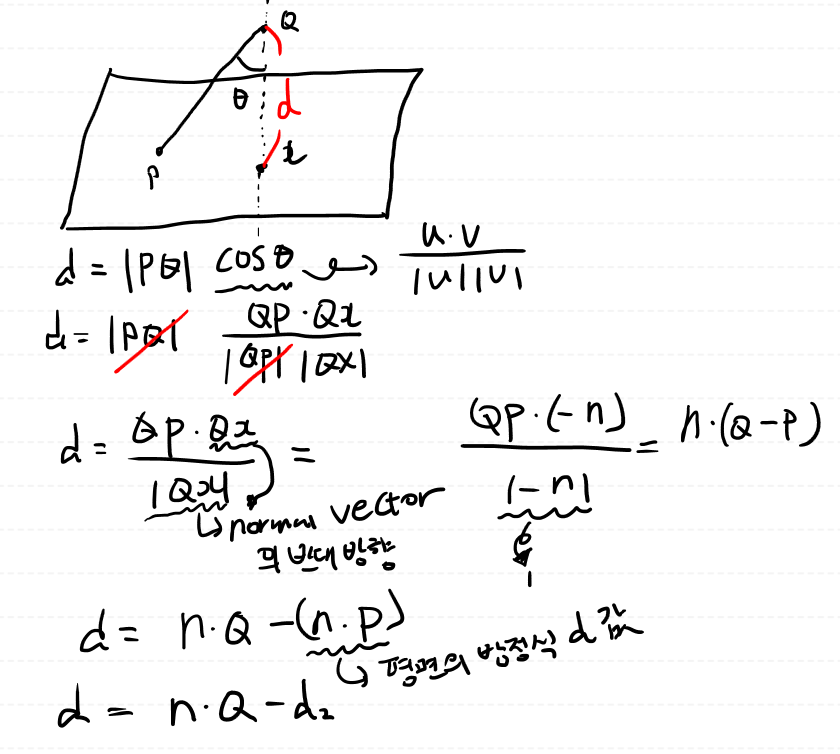 Q
θ
d
x
P
d = |PQ| cosθ → u·v / |u||v|
d = |PQ| QP·Qx / |QP| |QX|
d = QP·Qx / |Qx| = QP·(-n) / |-n| = n·(Q-P)
↳ normal vector
의 반대 방향
1
d = n·Q -(n·P)
↳ 평면의 방정식 d값
d = n·Q - d₂